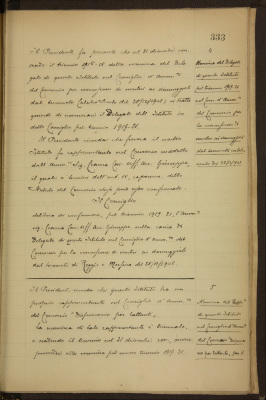 333
Il Presidente fa presente che col 31 dicembre
il triennio 1916-18 della nomina del Dele
gato di questo Istituto nel Consiglio d'Amm.ne
del Consorzio per concessione di mutui ai danneggiati
dal terremoto 28/12/908;
di nominare il Delegato dell'Istituto in
detto Consiglio per triennio 1919-21.
Il Presidente ricorda che finora il nostro
Istituto fu rappresentato nel Consorzio suddetto
dall'Amm.re Sig. Cosma Comm. Uff. Avv. Giuseppe,
il quale a termini dell'art. dello
Statuto del Consorzio dopo può esser confermato.
Il Consiglio
delibera di confermare, pel triennio 1919-21, l'Amm.re
sig. Cosma Comm. Uff. Avv. Giuseppe nella carica di
Delegato di questo Istituto nel Consiglio d'Amm.ne del
Consorzio per la concessione di mutui ai danneggiati
dal terremoto di Reggio e Messina del 28/12/908.
4
Nomina del Delegato
di questo Istituto
pel triennio 1919-21
nel Cons. d'Amm.ne
del Consorzio per
la concessione di
mutui ai danneggiati
dal terremoto
del 28/12/908
Il Presidente ricorda che questo Istituto ha un
proprio rappresentante nel Consiglio d'Amm.ne
del Consorzio "Dispensario per lattanti".
La nomina di tale rappresentante è triennale,
e scadendo il triennio col 31 dicembre,
provvedersi alla nomina pel nuovo triennio 1919-21.
5
Nomina del Deleg.
di questo Istituto
nel Consiglio d'Amm.
del Consorzio
per lattanti,